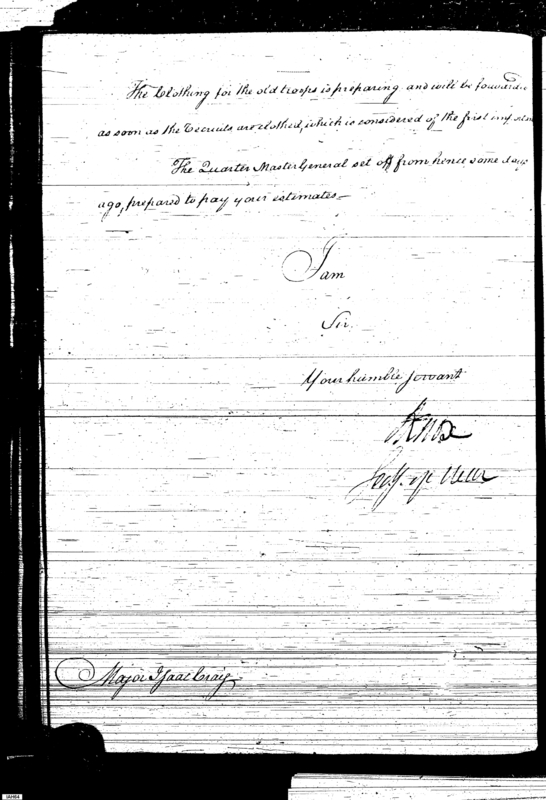 The Clothing for the old troops is preparing and will be forwarded
as soon as the recruits are clothed, which is considered of the first
The Quarter Master General set off from hence some days
ago, prepared to pay your estimates—
I am
Sir
Your humble servant
HKnox
Secy. of War
Major Isaac Craig
IAH64